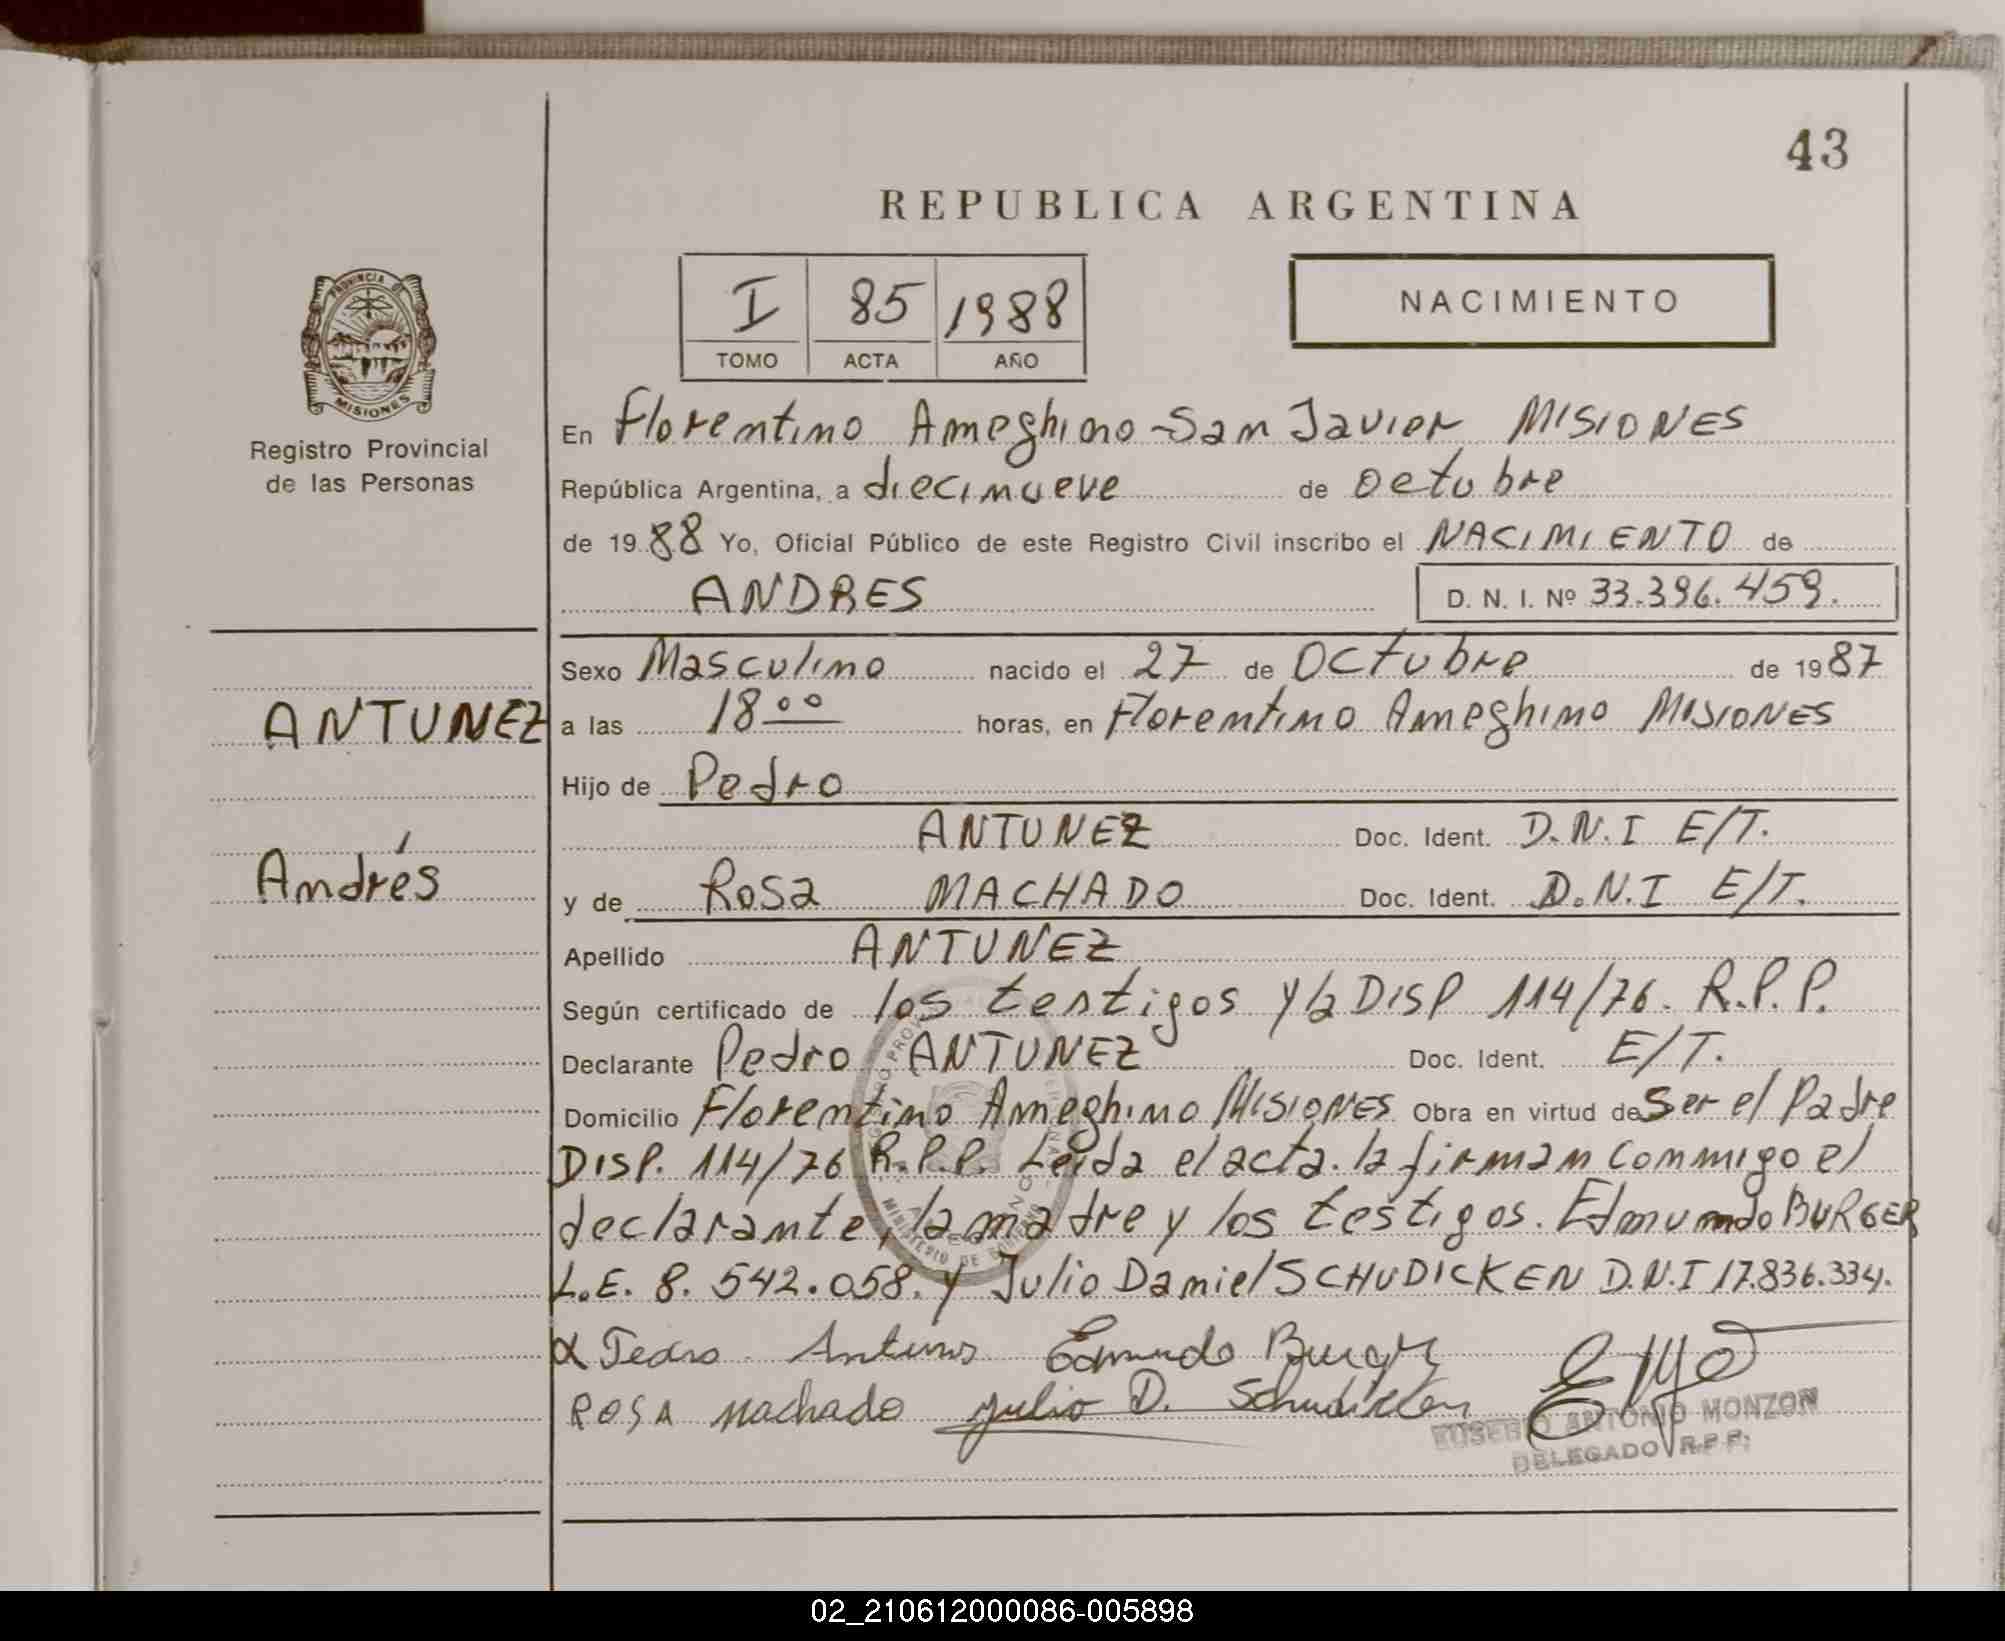 43
REPUBLICA ARGENTINA
I 85 1988
TOMO ACTA AÑO
NACIMIENTO
PROVINCIA DE
MISIONES
Registro Provincial
de las Personas
En Florentino Ameghino - San Javier MISIONES
República Argentina, a diecinueve de octubre
de 1988 Yo, Oficial Público de este Registro Civil inscribo el NACIMIENTO de
ANDRES D. N. I. Nº 33.396.459.
Sexo Masculino nacido el 27 de Octubre de 1987
ANTUNEZ
a las 18 00 horas, en Florentino Ameghino MISIONES
Hijo de Pedro
ANTUNEZ Doc. Ident. D.N.I E/T.
Andrés
y de Rosa MACHADO Doc. Ident. D.N.I E/T.
Apellido ANTUNEZ
Según certificado de los testigos y la DISP 114/76. R.P.P.
Declarante Pedro ANTUNEZ Doc. Ident. E/T.
Domicilio Florentino Ameghino MISIONES Obra en virtud de Ser el Padre
DISP. 114/76 R.P.P. Leida el acta. la firman conmigo el
declarante, la madre y los testigos. Edmundo BURGER
L.E. 8.542.058. y Julio Daniel SCHUDICKEN D.N.I 17.836.334.
Edmundo Burger
ROSA Machado Julio D. Schudicken
EUSEBIO ANTONIO MONZON
DELEGADO R.P.P.
02_210612000086-005898